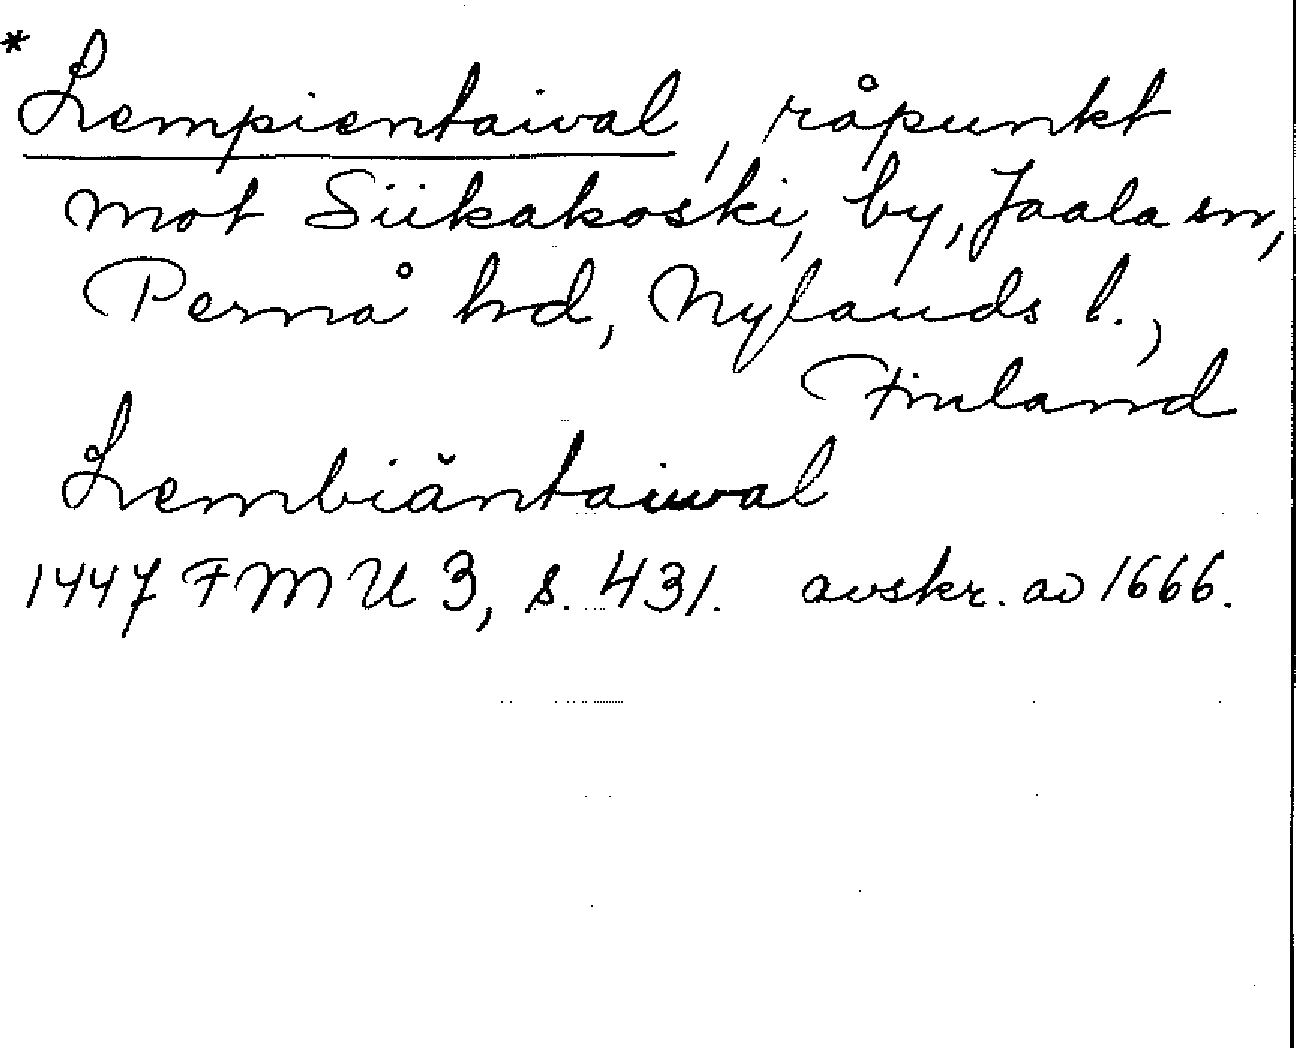 * Lempientaival, råpunkt
mot Siikakoski, by, Jaala sn,
Pernå hd, Nylands l.,
Finland
Lembiäntaiwal
1447 FMU 3, s. 431. avskr. av 1666.